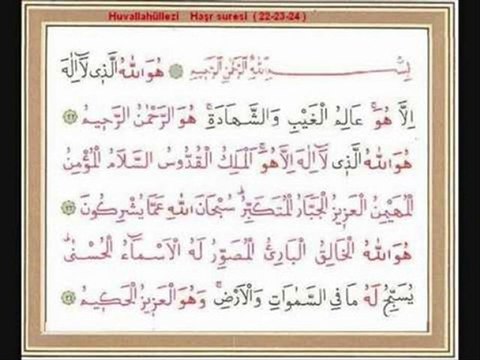 Huvallahüllezi Haşr suresi ( 22-23-24 )
بِسْمِ اللهِ الرَّحْمٰنِ الرَّحِيمِ هُوَ اللهُ الَّذِى لَا اِلٰهَ
اِلَّا هُوَ عَالِمُ الْغَيْبِ وَالشَّهَادَةِ هُوَ الرَّحْمٰنُ الرَّحِيمُ ﴿٢٢﴾
هُوَ اللهُ الَّذِى لَا اِلٰهَ اِلَّا هُوَ اَلْمَلِكُ الْقُدُّوسُ السَّلَامُ الْمُؤْمِنُ
الْمُهَيْمِنُ الْعَزِيزُ الْجَبَّارُ الْمُتَكَبِّرُ سُبْحَانَ اللهِ عَمَّا يُشْرِكُونَ ﴿٢٣﴾
هُوَ اللهُ الْخَالِقُ الْبَارِئُ الْمُصَوِّرُ لَهُ الْاَسْمَاءُ الْحُسْنٰى
يُسَبِّحُ لَهُ مَا فِى السَّمٰوَاتِ وَالْاَرْضِ وَهُوَ الْعَزِيزُ الْحَكِيمُ ﴿٢٤﴾